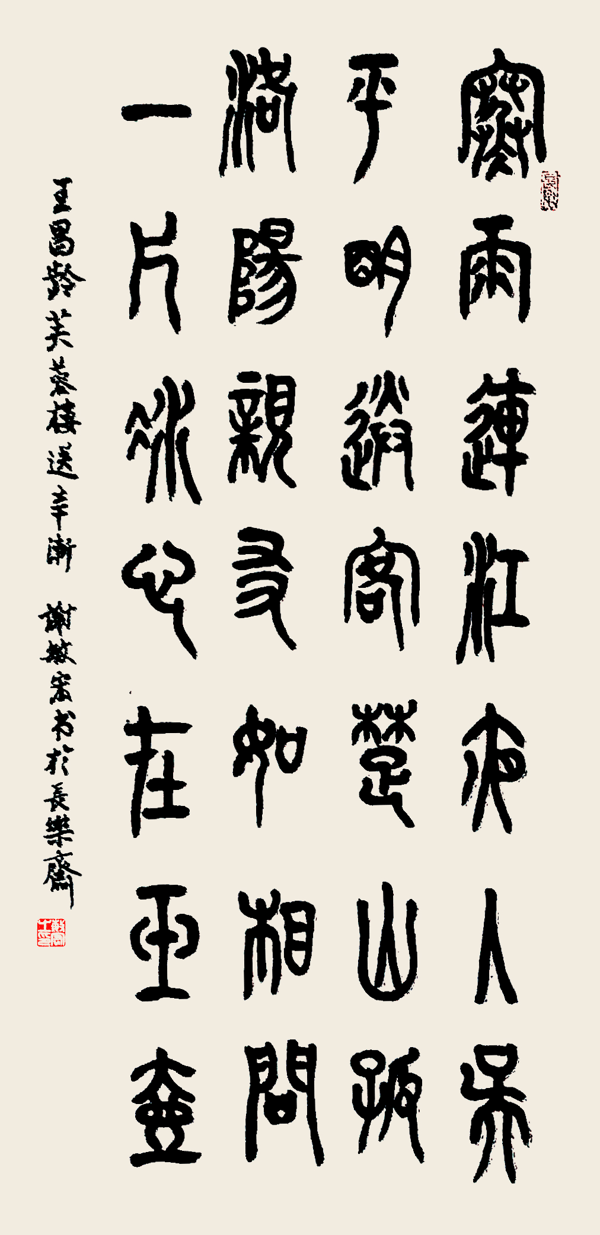 寒雨連江夜入吳
平明送客楚山孤
洛陽親友如相問
一片冰心在玉壺
王昌齡芙蓉樓送辛漸 謝敏宏书於長樂齋